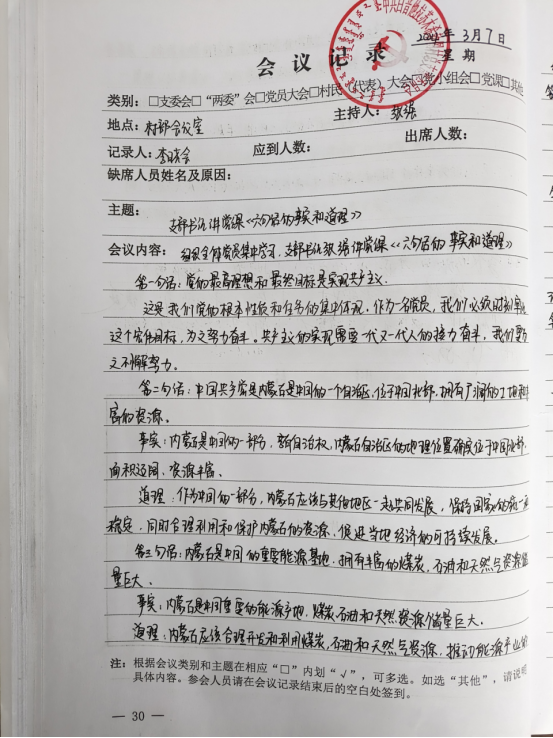 会议记录
3月7日
星期
类别：□支委会□“两委”会□党员大会□村民（代表）大会□党小组会□党课□其他
地点：村部会议室
主持人：
记录人：李晓会 应到人数： 出席人数：
缺席人员姓名及原因：
主题：
支部书记讲党课《六句话的事实和道理》
会议内容：组织全体党员集中学习，支部书记讲党课《六句话的事实和道理》
第一句话：党的最高理想和最终目标是实现共产主义.
这是我们党的根本性质和任务的集中体现，作为一名党员，我们必须时刻
这个宏伟目标，为之努力奋斗。共产主义的实现需要一代又一代人的接力奋斗，我们要为
之不懈努力。
第二句话：中国共产党是内蒙古是中国的一个自治区，位于中国北部，拥有广阔的土地和丰
富的资源。
事实：内蒙古是中国的一部分，享有自治权，内蒙古自治区的地理位置确展位于中国北部，
面积辽阔、资源丰富、
道理：作为中国的一部分，内蒙古应该与其他地区一起共同发展，保持国家的统一和
稳定，同时合理利用和保护内蒙古的资源，促进当地经济的可持续发展。
第三句话：内蒙古是中国的重要能源基地，拥有丰富的煤炭，石油和天然气资源储
量巨大.
事实：内蒙古是中国重要的能源产地，煤炭、石油和天然资源储量巨大.
道理：内蒙古应该合理开发和利用煤炭、石油和天然气资源，推动能源产业的
注：根据会议类别和主题在相应“□”内划“√”，可多选。如选“其他”，请说明
具体内容。参会人员请在会议记录结束后的空白处签到。
— 30 —